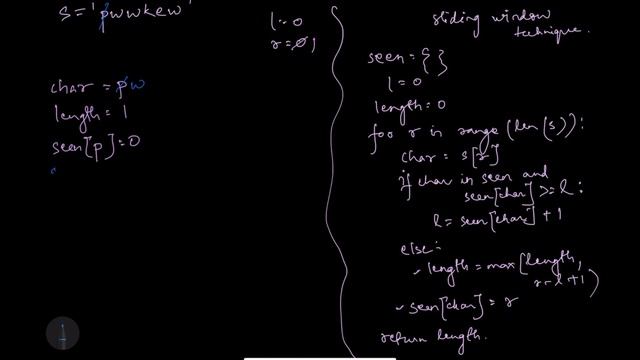 s = 'pwwkew'
l = 0
r = 0, 1
char = p w
length = 1
seen[p] = 0
sliding window
technique.
seen = { }
l = 0
length = 0
for r in range (len(s)):
char = s[r]
if char in seen and
seen[char] >= l :
l = seen[char] + 1
else:
length = max(length,
r - l + 1)
seen[char] = r
return length.